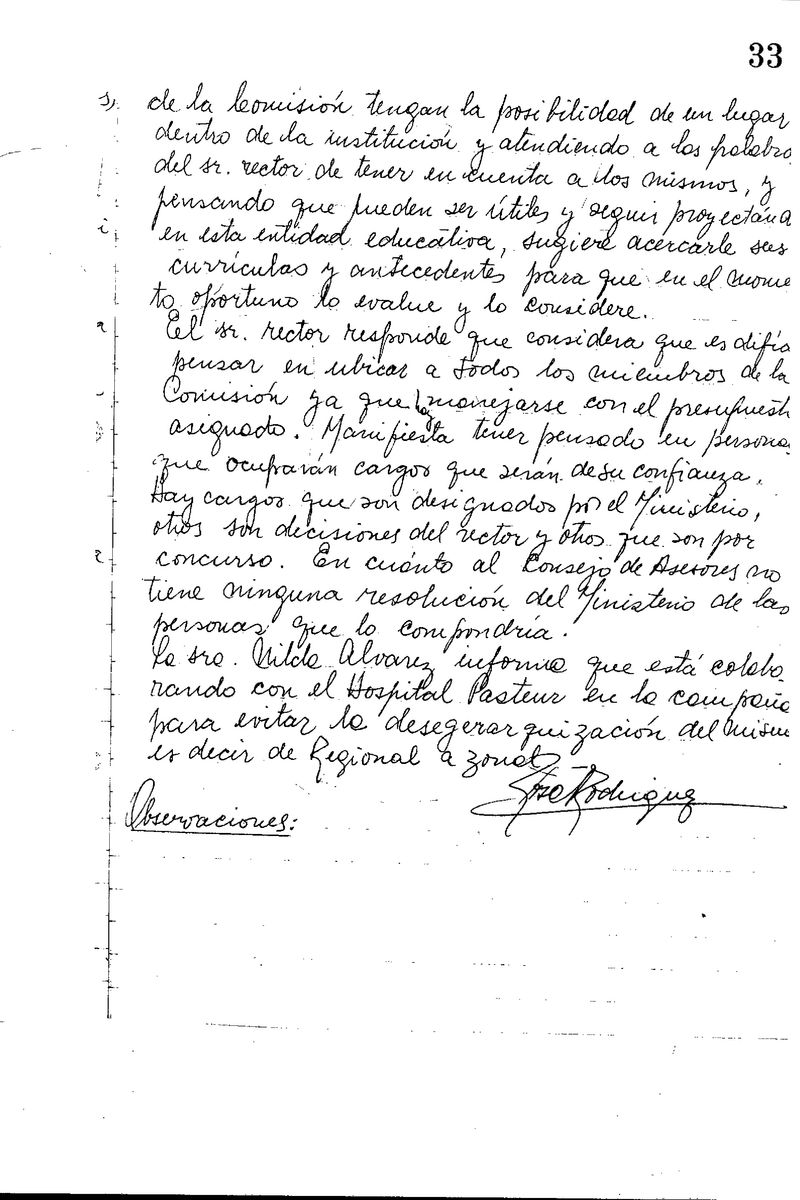 33
de la Comisión tengan la posibilidad de un lugar
dentro de la institución y atendiendo a las palabra
del sr. rector de tener en cuenta a los mismos, y
pensando que pueden ser útiles y seguir proyectánd
en esta entidad educativa, sugiere acercarle sus
currículas y antecedentes para que en el mome
to oportuno lo evalue y lo considere.
El sr. rector responde que considera que es difíci
pensar en ubicar a todos los miembros de la
Comisión ya que hay manejarse con el presupuest
asignado. Manifiesta tener pensado en persona
que ocuparán cargos que serán de su confianza.
Hay cargos que son designados por el Ministerio,
otros son decisiones del rector y otros que son por
concurso. En cuánto al Consejo de Asesores no
tiene ninguna resolución del Ministerio de las
personas que lo compondría.
La sra. Nilda Alvarez informa que está colabo
rando con el Hospital Pasteur en la campaña
para evitar la desegerarquización del mism
es decir de Regional a zonal
José Rodriguez
Observaciones: